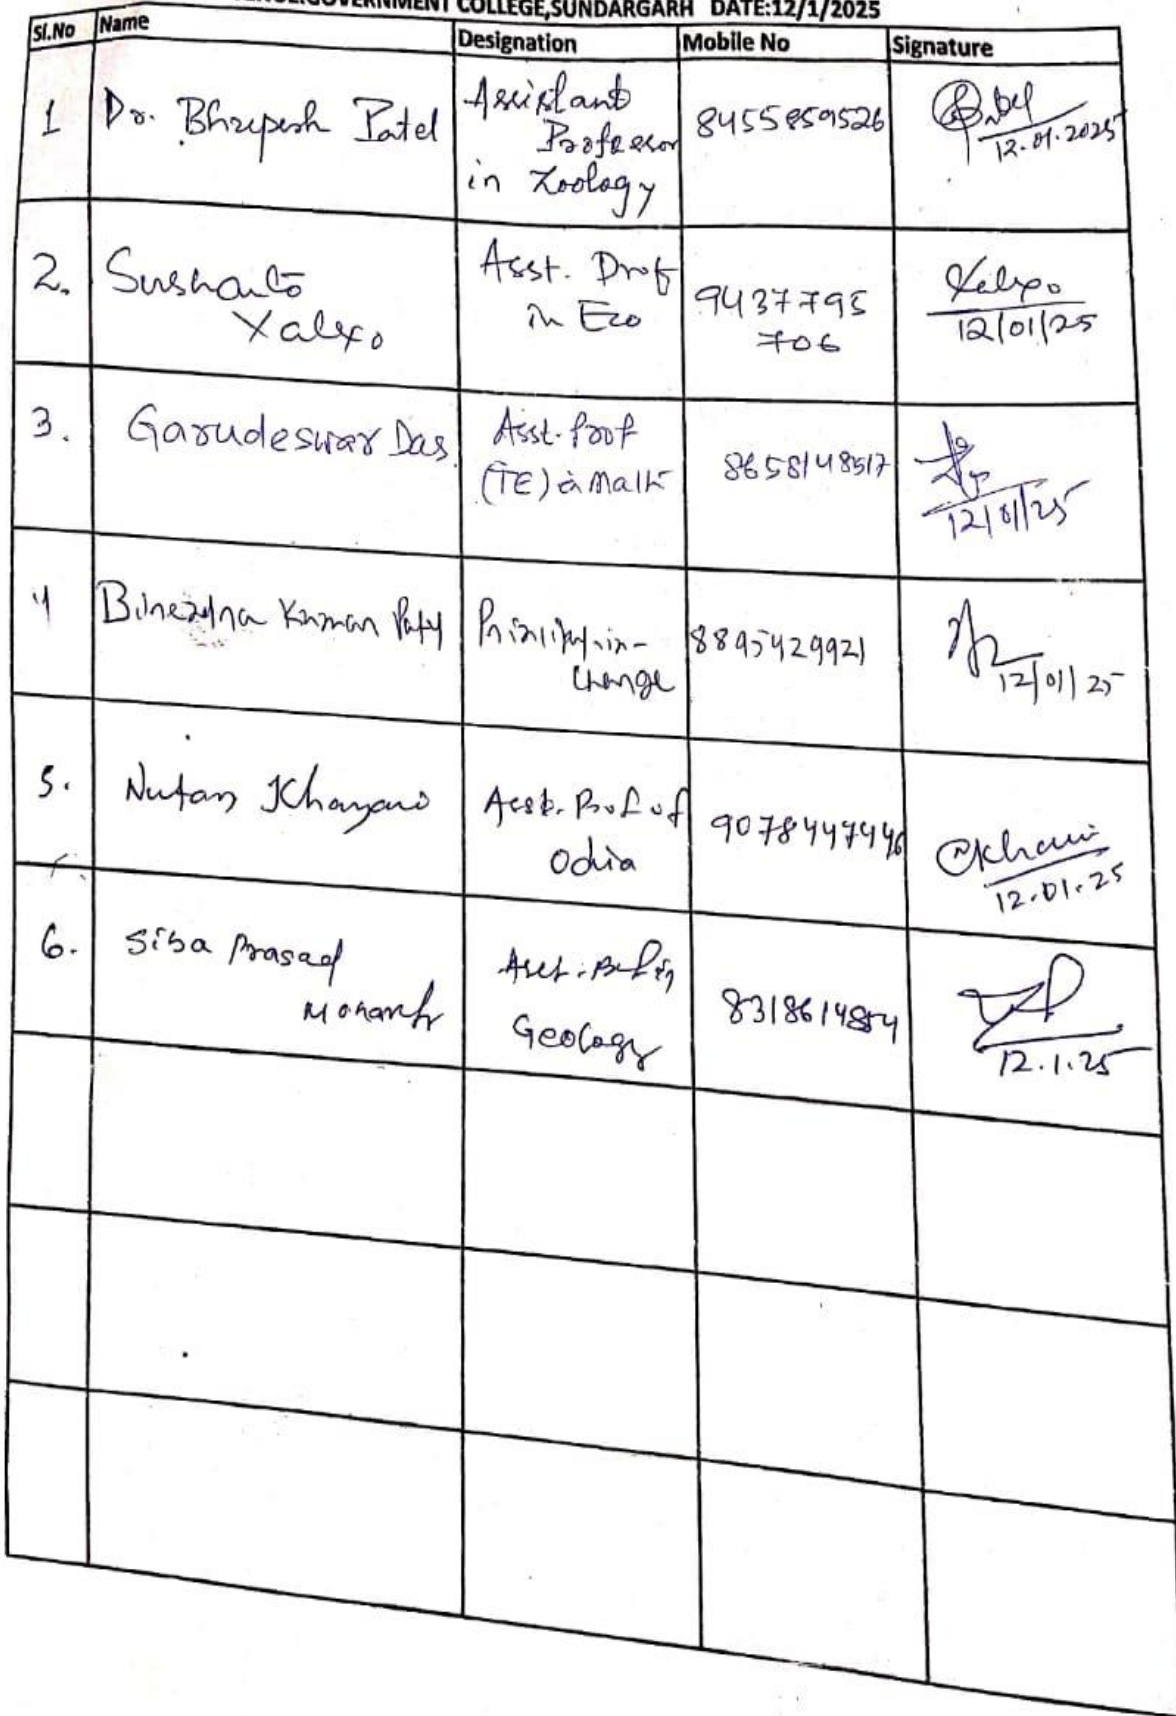 GOVERNMENT COLLEGE,SUNDARGARH DATE:12/1/2025
Sl.No Name Designation Mobile No Signature
1 Dr. Bhupesh Patel Assistant Professor in Zoology 8455859526 12.01.2025
2. Sushanto Xalxo Asst. Prof in Eco 9437795 706 Xalxo 12/01/25
3. Garudeswar Das Asst. Prof (TE) in Math 8658148517 12/01/25
4 Kumar in- charge 8895429921 12/01/25
5. Nutan Asst. Prof of Odia 9078447446 12.01.25
6. Siba Prasad Asst. Prof in Geology 8318614854 12.1.25